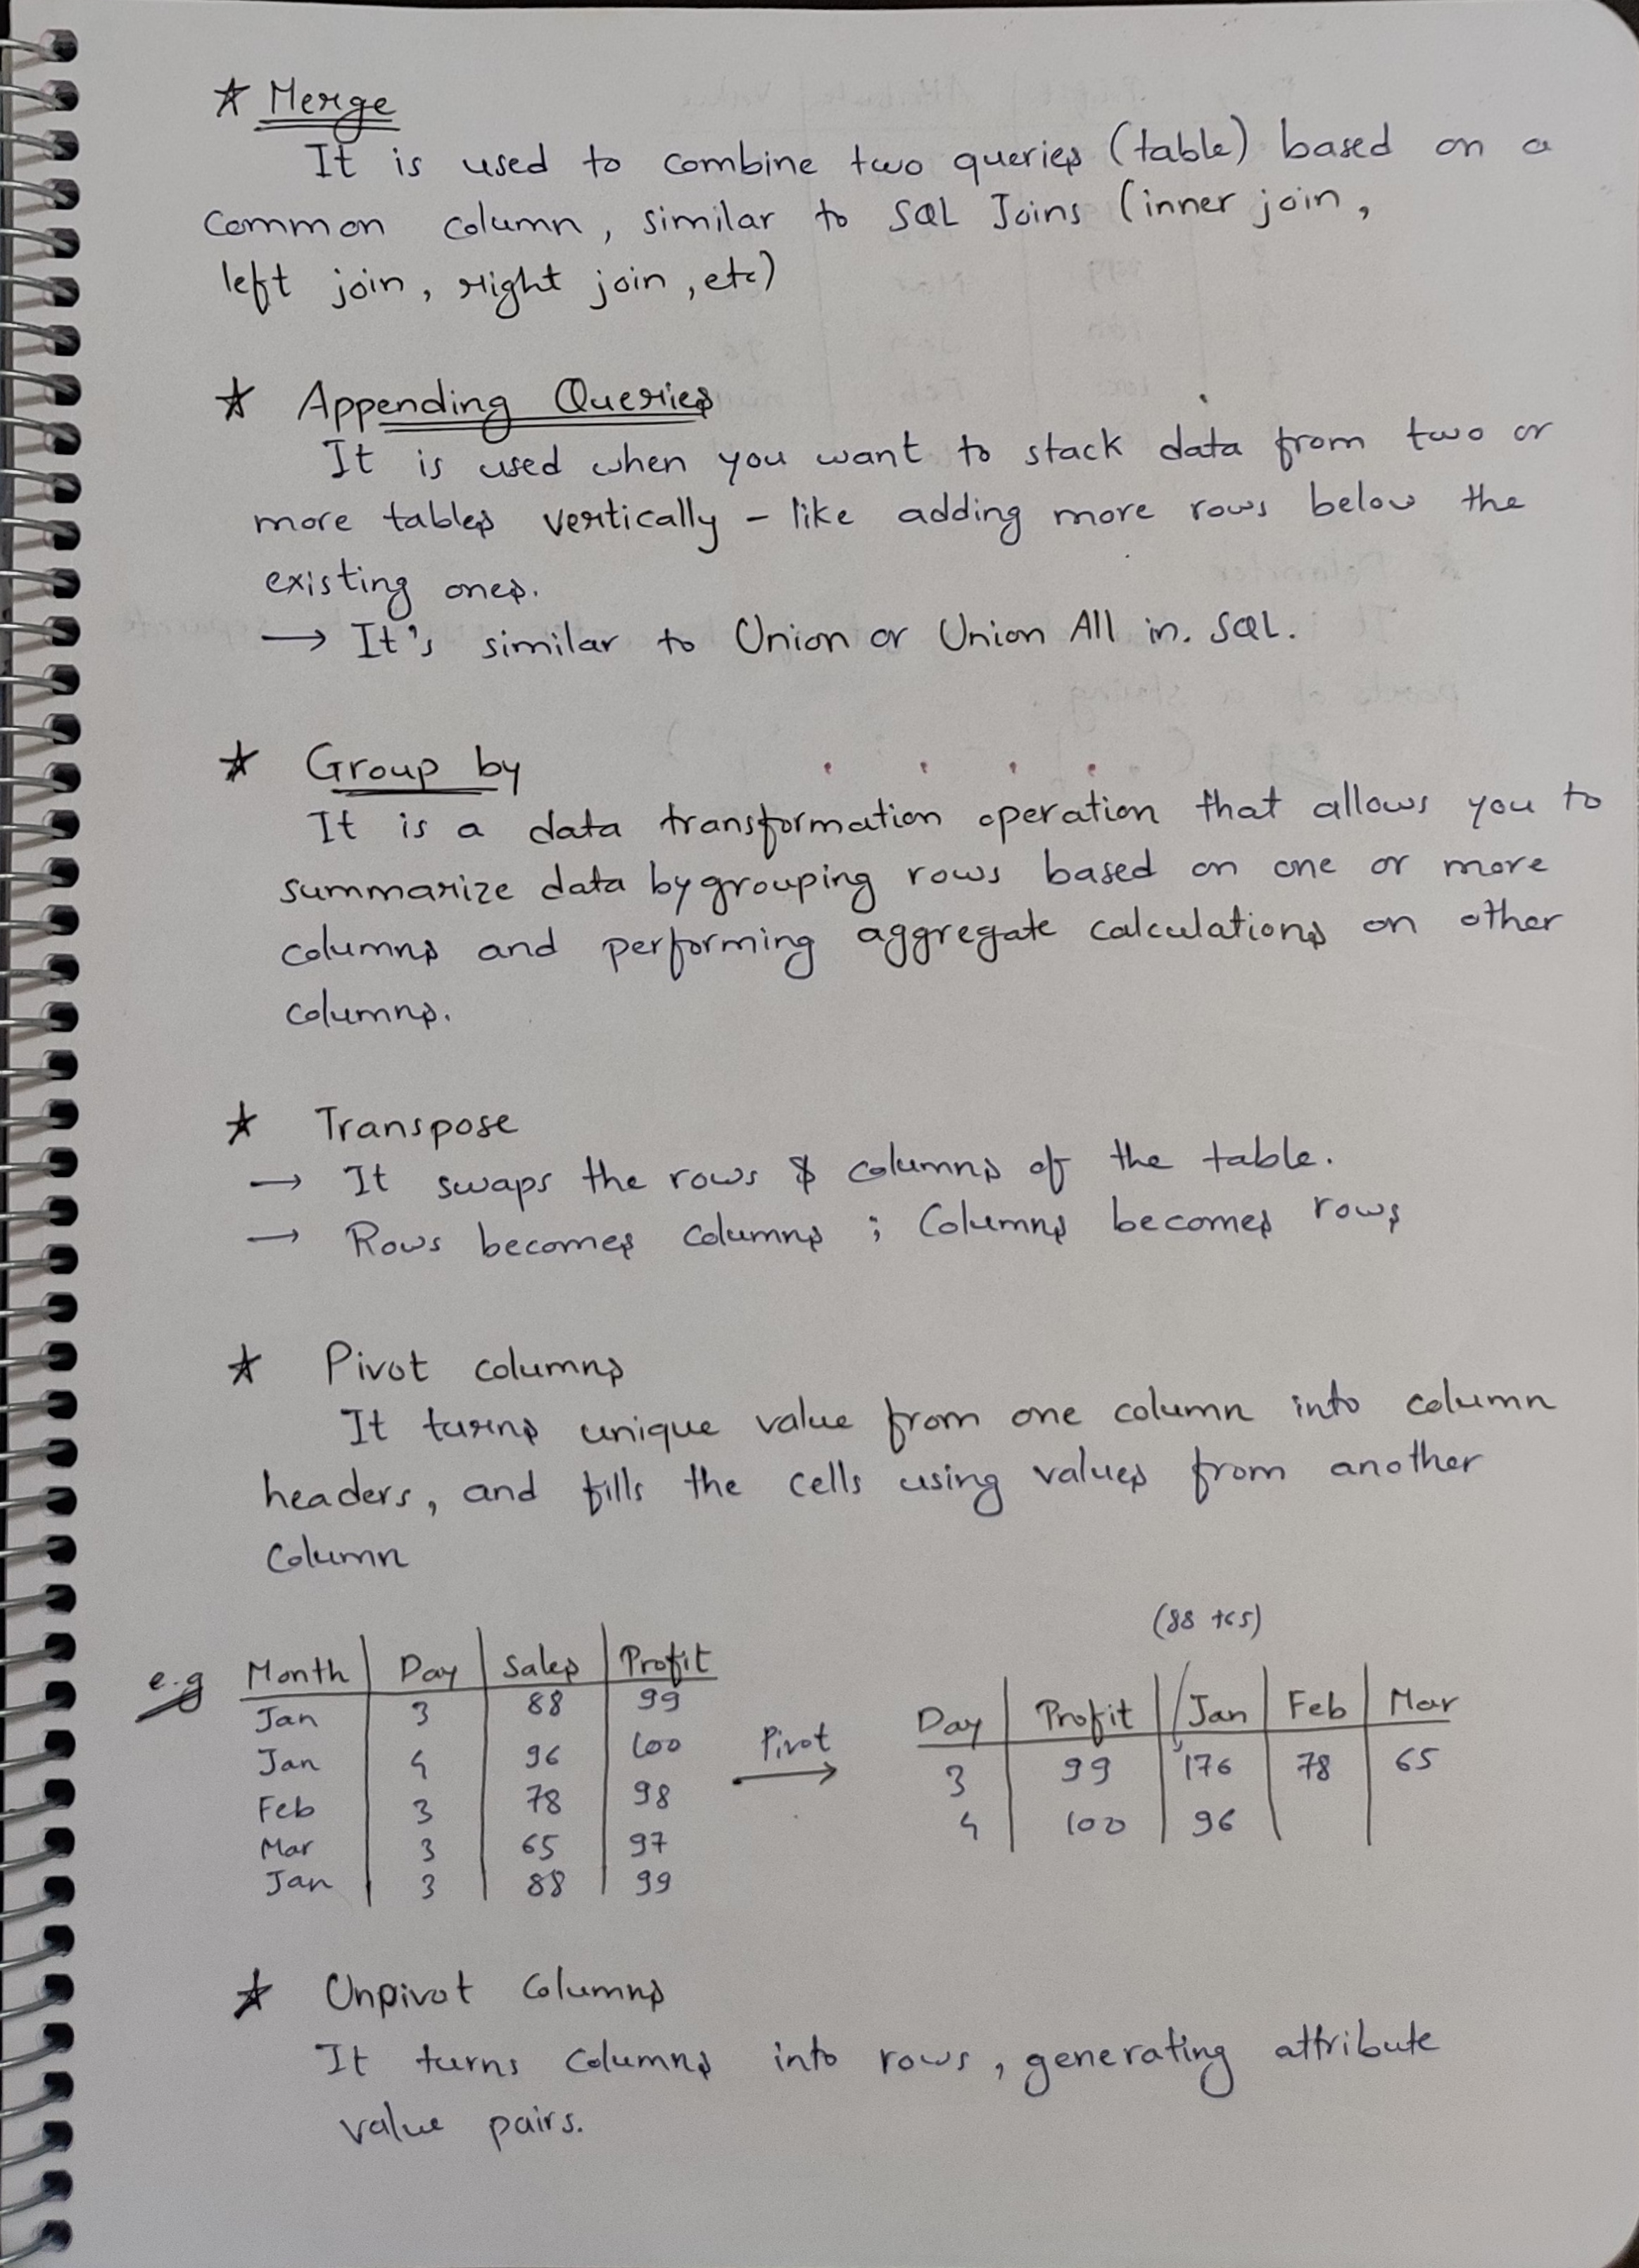 ★ Merge
It is used to combine two queries (table) based on a
common column, similar to SQL Joins (inner join,
left join, right join, etc)
★ Appending Queries
It is used when you want to stack data from two or
more tables vertically - like adding more rows below the
existing ones.
→ It's similar to Union or Union All in. SQL.
★ Group by
It is a data transformation operation that allows you to
summarize data by grouping rows based on one or more
columns and performing aggregate calculations on other
columns.
★ Transpose
→ It swaps the rows & columns of the table.
→ Rows becomes columns ; Columns becomes rows
★ Pivot columns
It turns unique value from one column into column
headers, and fills the cells using values from another
Column
e.g Month | Day | Sales | Profit
Jan 3 88 99
Jan 4 96 100
Feb 3 78 98
Mar 3 65 97
Jan 3 88 99
Pivot →
Day | Profit | Jan | Feb | Mar
3 99 176 78 65
4 100 96
★ Unpivot Columns
It turns columns into rows, generating attribute
value pairs.